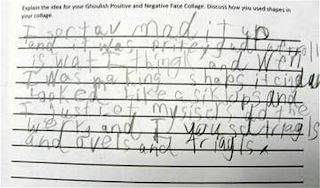 Explain the idea for your Ghoulish Positive and Negative Face Collage. Discuss how you used shapes in
your collage.
I sortav mad it up
and it was pritey
is wat I thingk and wen
I was making shaps it cind
looked like a ciklops and
I just of my
work and I yousd triagls
and ovels and triagls.